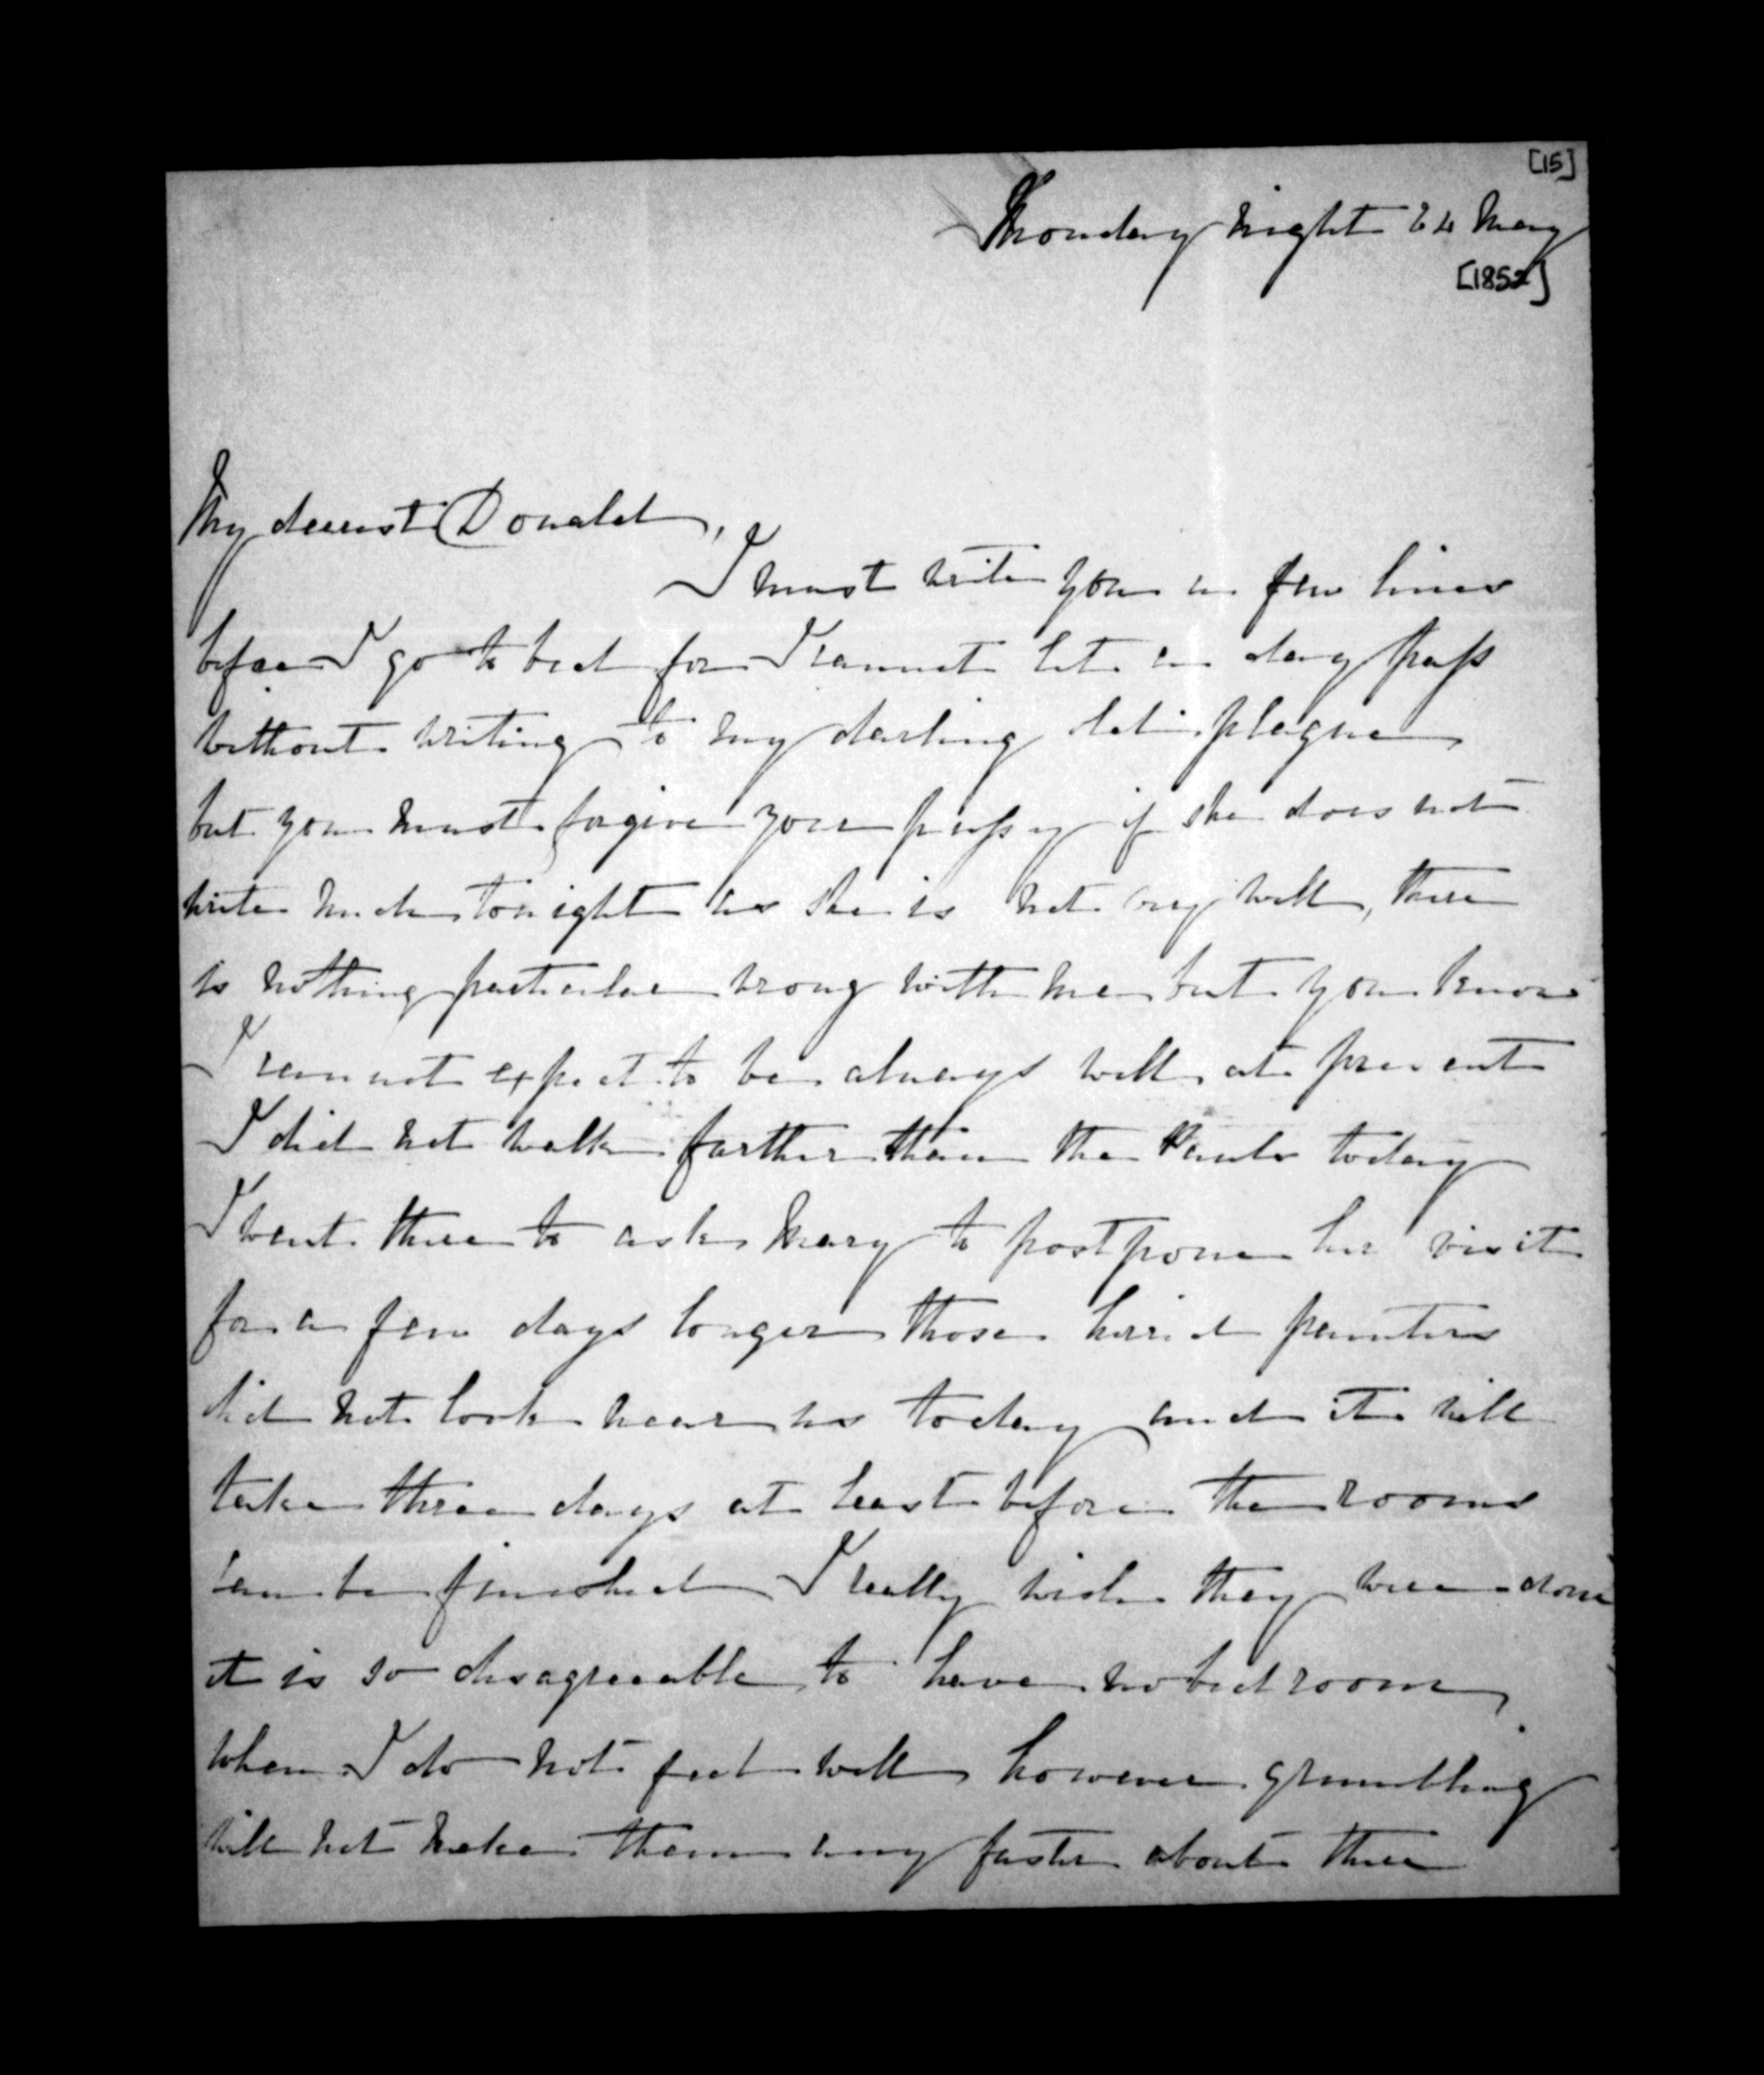 [15]
Monday night 24 May
[1852]
My dearest Donald,
I must write you a few lines
before I go to bed for I cannot let a day pass
without writing to my darling plague
but you must forgive your pussy if she does not
write much tonight as she is not very well, there
is nothing particular wrong with me but you know
I cannot expect to be always well at present
I did not walk farther than the today
I went there to ask Mary to postpone her visit
for a few days longer those horrid painters
did not look near us today and it will
take three days at least before the rooms
can be finished I really wish they were done
it is so disagreeable to have no bedroom
when I do not feel well however grumbling
will not make them any faster about three